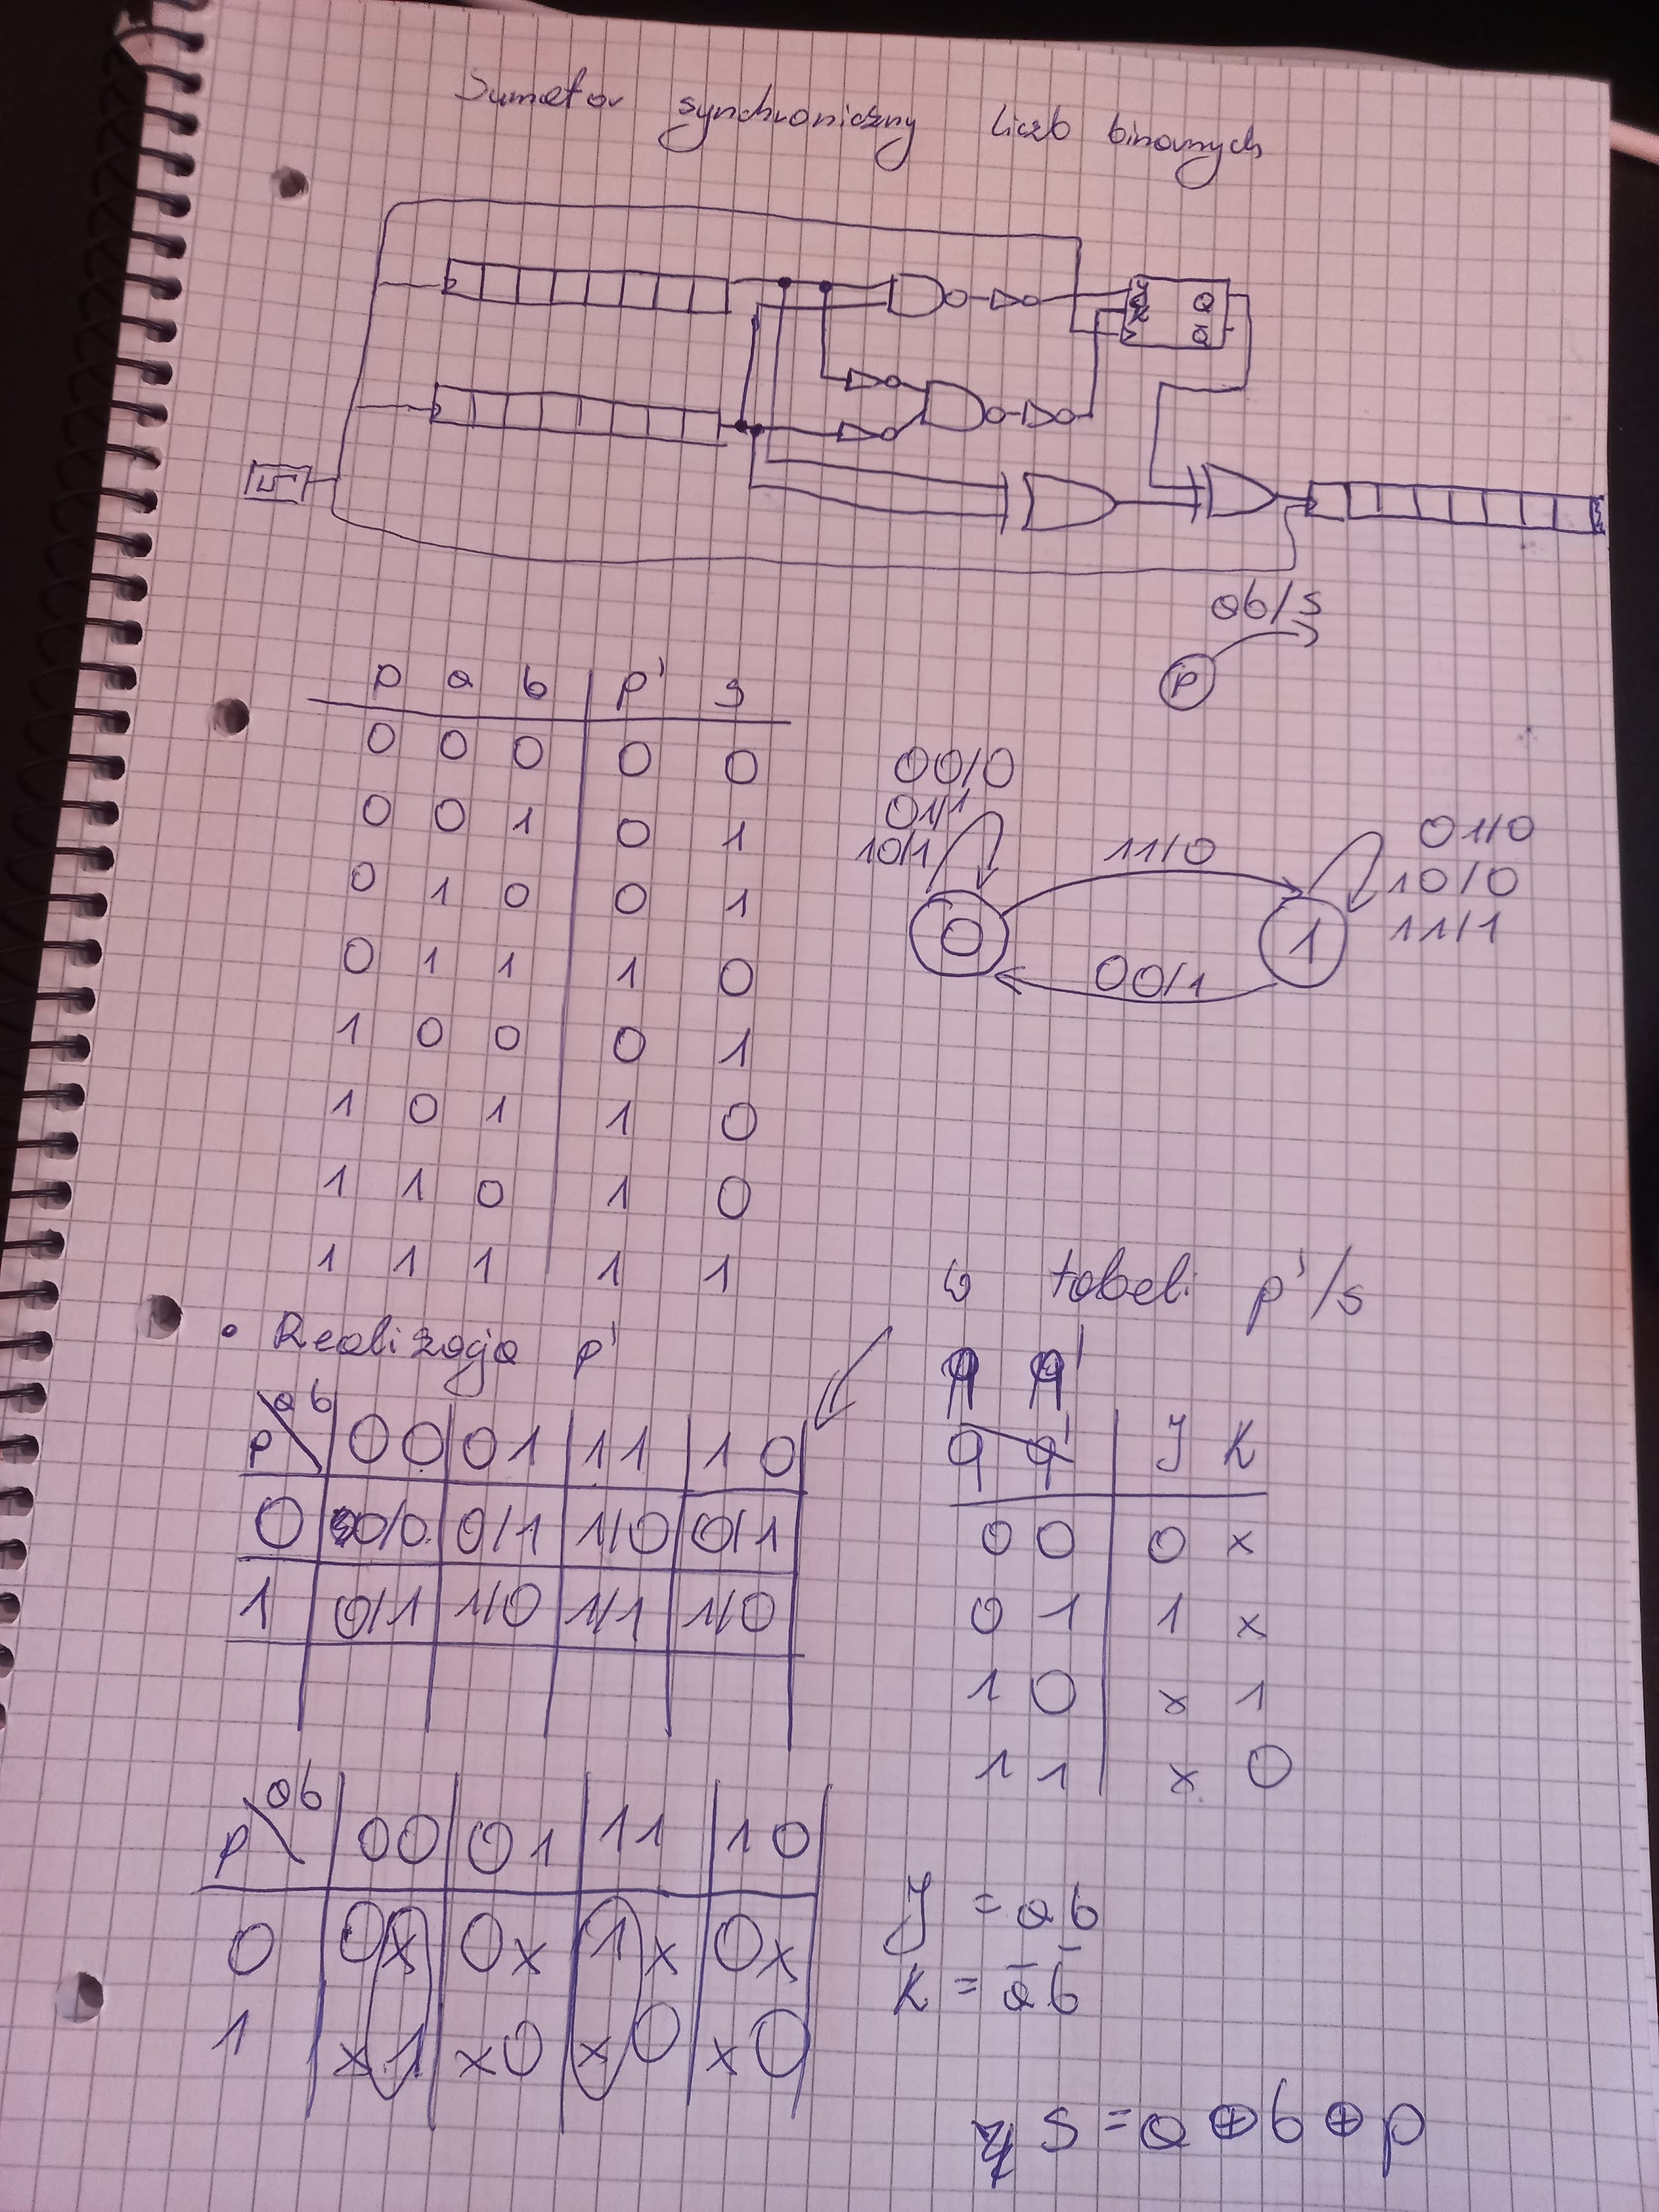 Sumator synchroniczny liczb binarnych
J Q
K Q̅
ab/s
p
p a b | p' s
0 0 0 | 0 0
0 0 1 | 0 1
0 1 0 | 0 1
0 1 1 | 1 0
1 0 0 | 0 1
1 0 1 | 1 0
1 1 0 | 1 0
1 1 1 | 1 1
00/0
01/1
10/1
11/0
01/0
10/0
11/1
0
1
00/1
w tabeli p'/s
• Realizacja p'
p\ab | 00 | 01 | 11 | 10
0 | 0/0 | 0/1 | 1/0 | 0/1
1 | 0/1 | 1/0 | 1/1 | 1/0
q q'
q q' | J K
0 0 | 0 x
0 1 | 1 x
1 0 | x 1
1 1 | x 0
p\ab | 00 | 01 | 11 | 10
0 | 0x | 0x | 1x | 0x
1 | x1 | x0 | x0 | x0
J = ab
K = a̅b̅
S = a ⊕ b ⊕ p